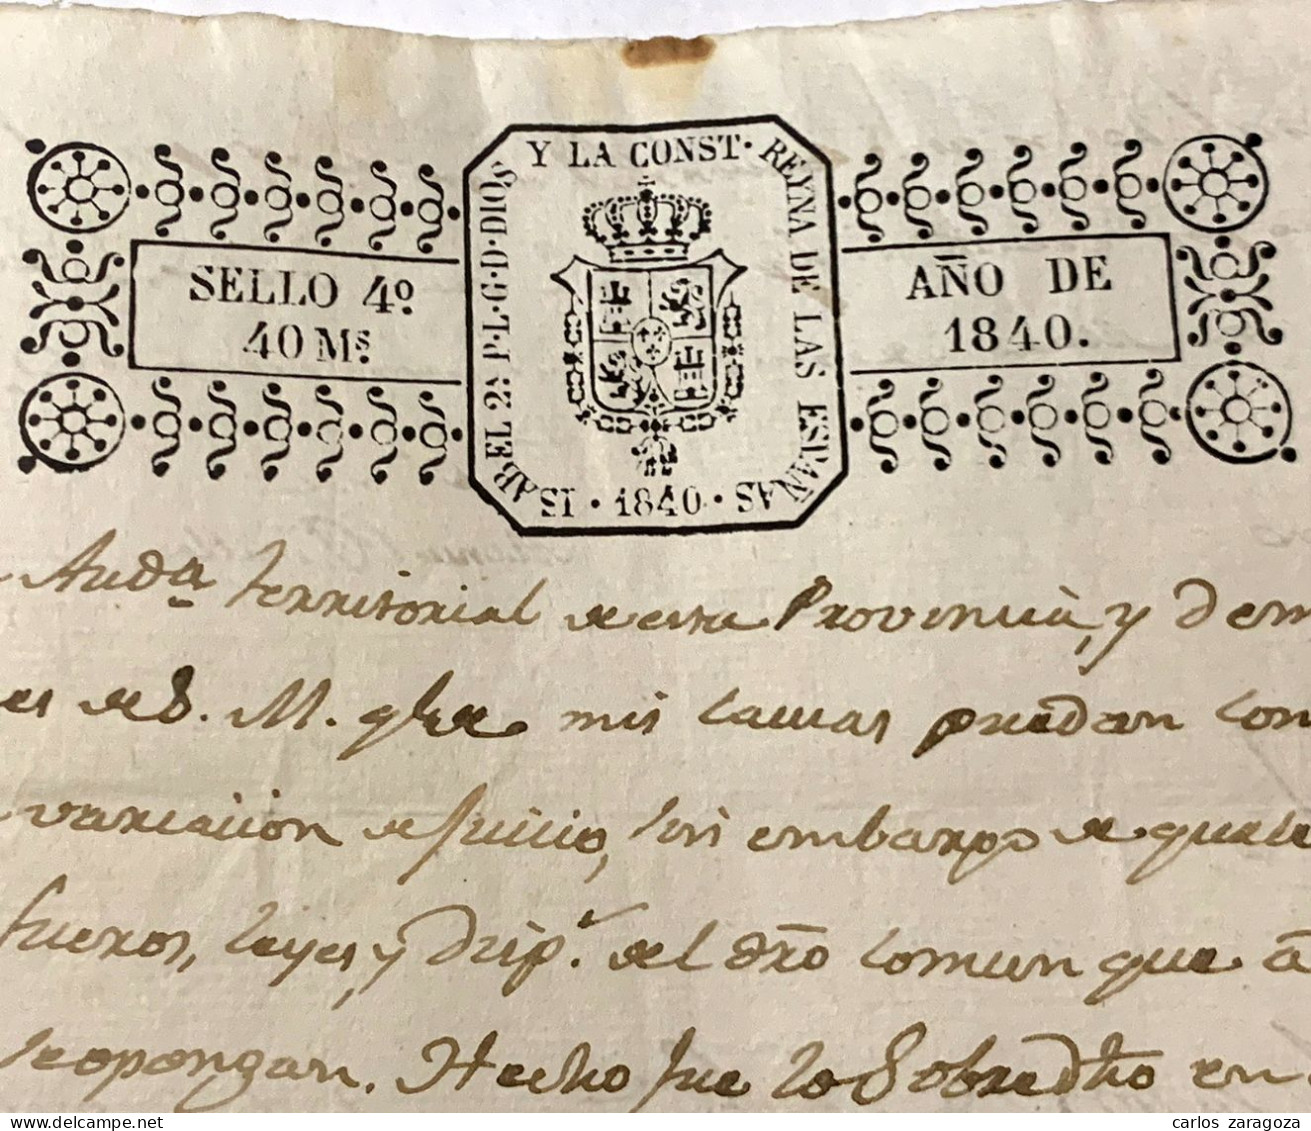 ISABEL 2ª P. L. G. D. DIOS Y LA CONST. REYNA DE LAS ESPAÑAS
· 1840 ·
SELLO 4º
40 Ms.
AÑO DE
1840.
Audª territorial de esta Provincia, y dem
es de S. M. q̶ue mis causas puedan con
variacion de Juicio, sin embargo de quale
fueros, leyes, y Disp.ˢ del dr̃o comun que á
se opongan. Hecho fue lo Sobredho en
carlos zaragoza